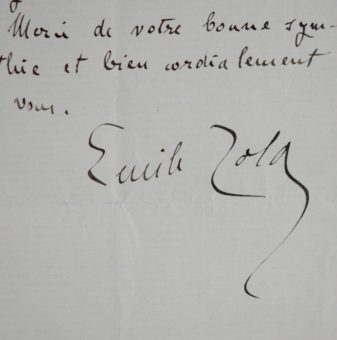 Merci de votre bonne sym-
thie et bien cordialement
vous.
Emile Zola